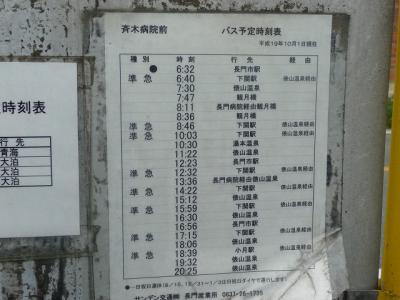 斉木病院前 バス予定時刻表
平成19年10月1日現在
種別 時刻 行先 経由
● 6:32 長門市駅
準急 6:40 下関駅 俵山温泉経由
7:30 俵山温泉
7:47 観月橋
8:11 長門病院経由観月橋
8:36 観月橋
準急 8:46 下関駅 俵山温泉経由
準急 10:03 下関駅 俵山温泉経由
10:30 湯本温泉
11:22 俵山温泉
12:23 長門市駅
準急 12:32 下関駅 俵山温泉経由
13:36 長門病院経由俵山温泉
準急 14:22 下関駅 俵山温泉経由
15:12 俵山温泉
準急 15:59 下関駅 俵山温泉経由
16:30 俵山温泉
16:56 俵山温泉
準急 17:15 下関駅 俵山温泉経由
18:06 俵山温泉
準急 18:39 小月駅 俵山温泉経由
19:32 俵山温泉
20:25 俵山温泉
サンデン交通㈱ 長門営業所
定時刻表
行先
青海
大泊
大泊
大泊